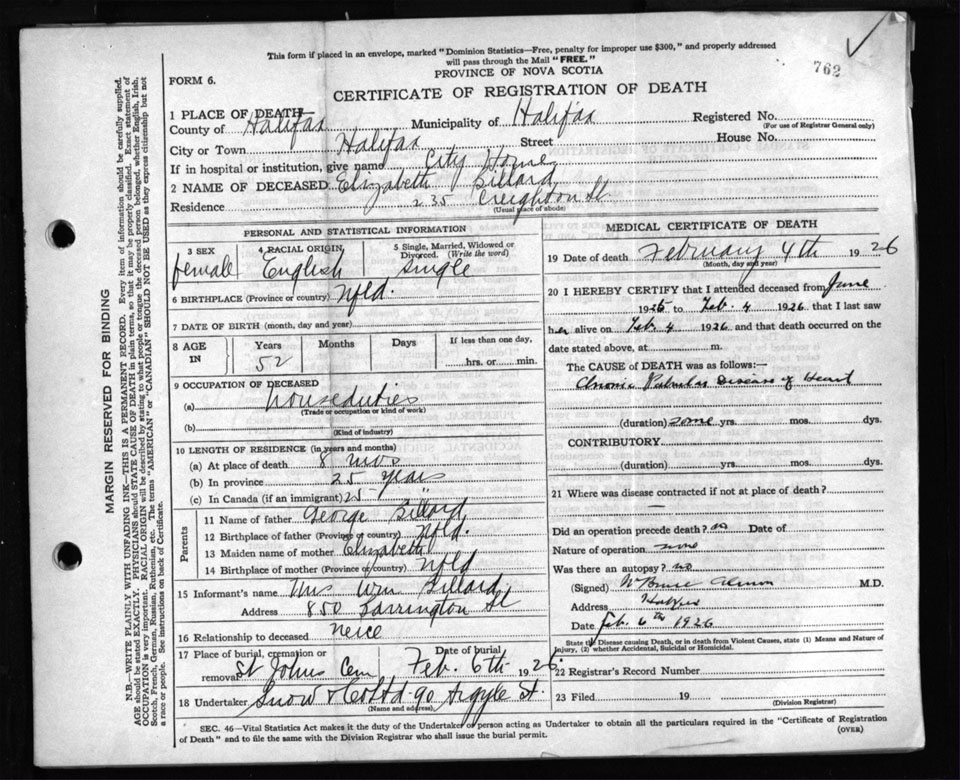 This form if placed in an envelope, marked "Dominion Statistics—Free, penalty for improper use $300," and properly addressed
will pass through the Mail "FREE."
762
PROVINCE OF NOVA SCOTIA
FORM 6.
CERTIFICATE OF REGISTRATION OF DEATH
1 PLACE OF DEATH—
County of Halifax Municipality of Halifax Registered No.
(For use of Registrar General only)
City or Town Halifax Street House No.
If in hospital or institution, give name City Home
2 NAME OF DECEASED Elizabeth Billard
Residence 235 Creighton St
(Usual place of abode)
PERSONAL AND STATISTICAL INFORMATION
3 SEX female
4 RACIAL ORIGIN, English
5 Single, Married, Widowed or Divorced. (Write the word) single
6 BIRTHPLACE (Province or country) Nfld.
7 DATE OF BIRTH (month, day and year)
8 AGE IN Years 52 Months Days If less than one day, hrs. or min.
9 OCCUPATION OF DECEASED
(a) houseduties
(Trade or occupation or kind of work)
(b)
(Kind of industry)
10 LENGTH OF RESIDENCE (in years and months)
(a) At place of death 8 mos
(b) In province 25 years
(c) In Canada (if an immigrant) 25 "
Parents
11 Name of father George Billard
12 Birthplace of father (Province or country) Nfld.
13 Maiden name of mother Elizabeth
14 Birthplace of mother (Province or country) Nfld
15 Informant's name Mrs Wm Billard
Address 850 Barrington St
16 Relationship to deceased neice
17 Place of burial, cremation or removal St Johns Cem Date of burial Feb. 6th 1926.
18 Undertaker Snow & Co Ltd. 90 Argyle St.
(Name and address)
MEDICAL CERTIFICATE OF DEATH
19 Date of death February 4th 1926
(Month, day and year)
20 I HEREBY CERTIFY that I attended deceased from June
1925 to Feb. 4 1926 that I last saw
her alive on Feb. 4 1926 and that death occurred on the
date stated above, at m.
The CAUSE of DEATH was as follows:—
Chronic Valvular Disease of Heart
(duration) some yrs. mos. dys.
CONTRIBUTORY
(duration) yrs. mos. dys.
21 Where was disease contracted if not at place of death?
—
Did an operation precede death? no Date of
Nature of operation none
Was there an autopsy? no
(Signed) W Bruce Almon M.D.
Address Halifax
Date Feb. 6th 1926
State the Disease causing Death, or in death from Violent Causes, state (1) Means and Nature of
Injury, (2) whether Accidental, Suicidal or Homicidal.
22 Registrar's Record Number
23 Filed 19
(Division Registrar)
SEC. 46—Vital Statistics Act makes it the duty of the Undertaker or person acting as Undertaker to obtain all the particulars required in the "Certificate of Registration
of Death" and to file the same with the Division Registrar who shall issue the burial permit.
(OVER)
MARGIN RESERVED FOR BINDING
N.B.—WRITE PLAINLY WITH UNFADING INK—THIS IS A PERMANENT RECORD. Every item of information should be carefully supplied.
AGE should be stated EXACTLY. PHYSICIANS should STATE CAUSE OF DEATH in plain terms, so that it may be properly classified. Exact statement of
OCCUPATION is very important. RACIAL ORIGIN will be described by stating to what people or tongue the deceased person belonged, whether English, Irish,
Scotch, French, German, Russian, Ruthenian, etc. The terms "AMERICAN" or "CANADIAN" SHOULD NOT BE USED as they express citizenship but not
a race or people. See instructions on back of Certificate.